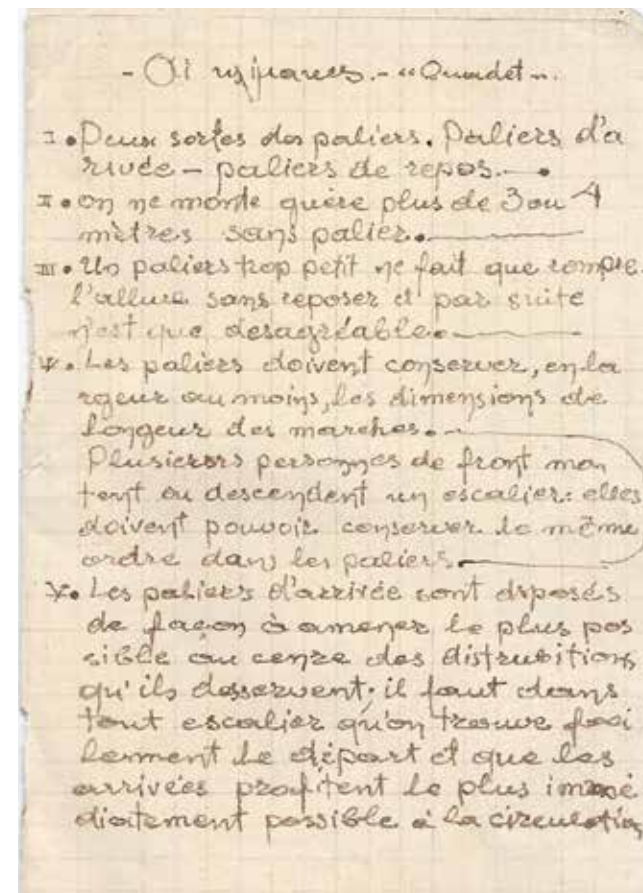 I. Deux sortes des paliers. Paliers d'a
rivée – paliers de repos. — .
II. on ne monte guère plus de 3 ou 4
mètres sans palier. —
III. Un paliers trop petit ne fait que rompre
l'allure sans reposer et par suite
n'est que desagréable. —
IV. Les paliers doivent conserver, en la
rgeur au moins, les dimensions de
longeur des marches. —
Plusieurs personnes de front mon
tent ou descendent un escalier: elles
doivent pouvoir conserver le même
ordre dans les paliers. —
V. Les paliers d'arrivée sont disposés
de façon à amener le plus pos
sible au cenre des distrubitions
qu'ils desservent; il faut dans
tout escalier qu'on trouve faci
lerment le départ et que les
arrivées profitent le plus immé
diatement possible à la circulation